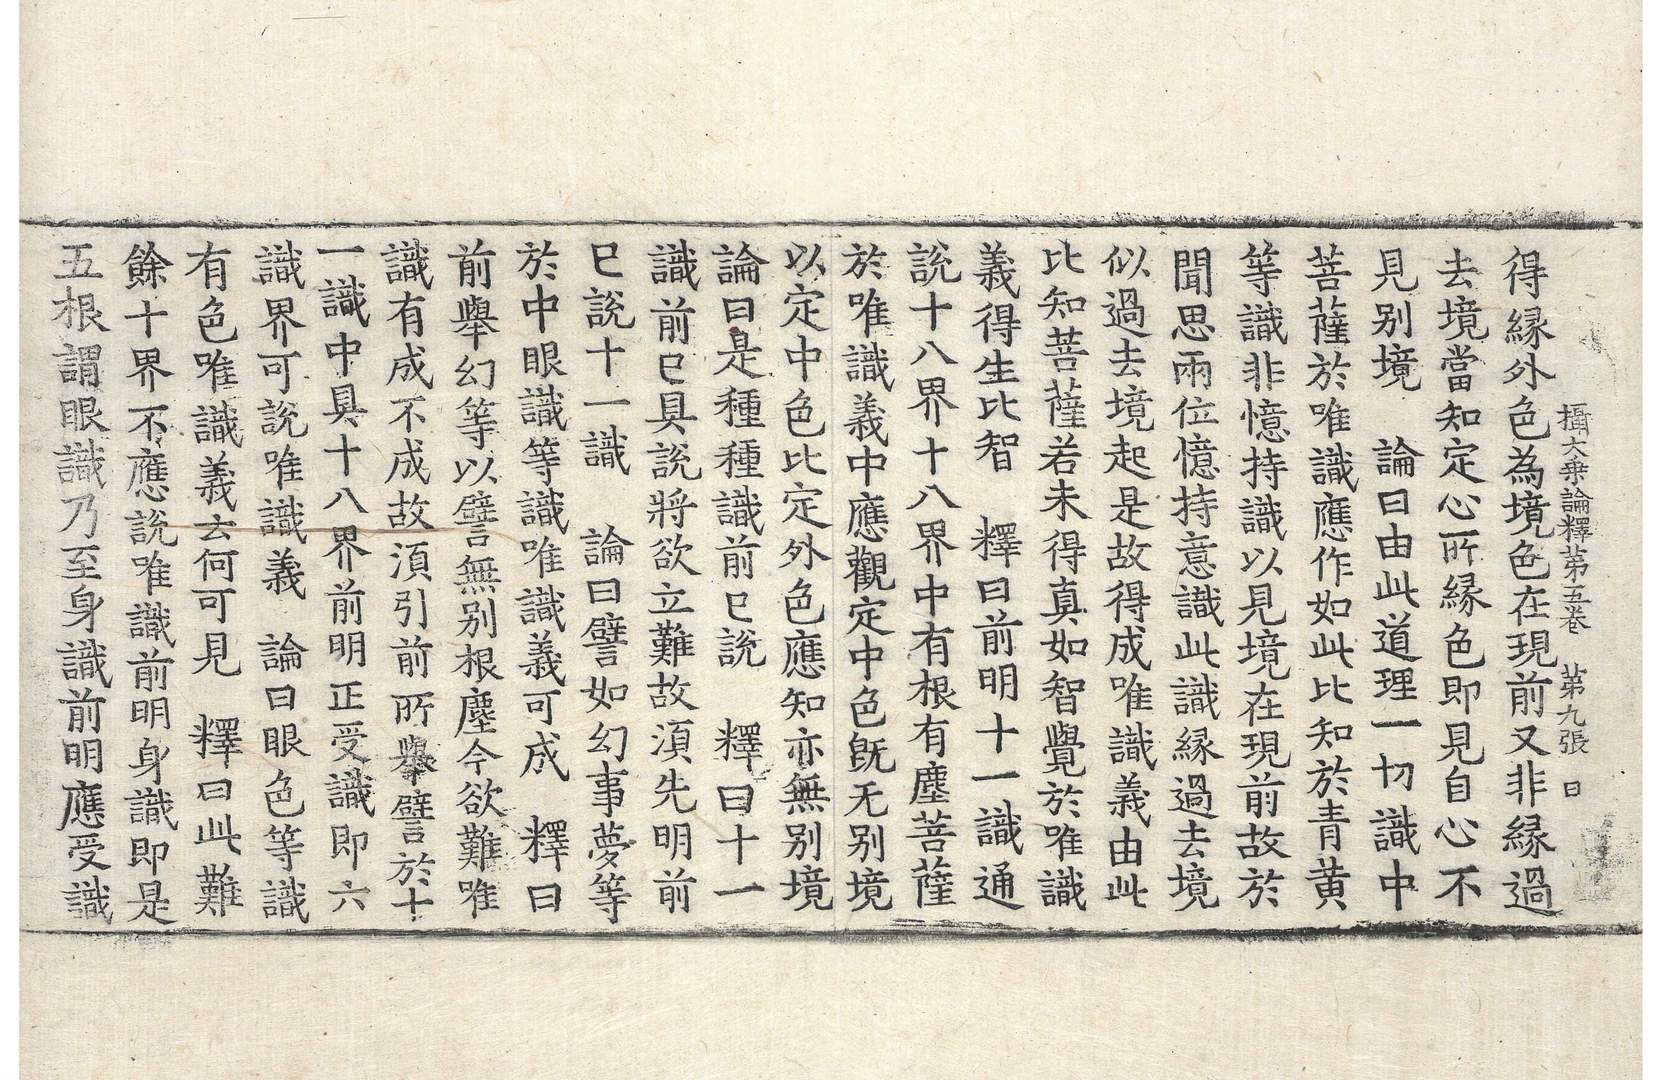 攝大乗論釋苐五卷 苐九張 日
得縁外色為境色在現前又非縁過
去境當知定心所縁色即見自心不
見别境 論曰由此道理一切識中
菩薩於唯識應作如此比知於青黄
等識非憶持識以見境在現前故於
聞思兩位憶持意識此識縁過去境
似過去境起是故得成唯識義由此
比知菩薩若未得真如智覺於唯識
義得生比智 釋曰前明十一識通
說十八界十八界中有根有塵菩薩
於唯識義中應觀定中色旣无别境
以定中色比定外色應知亦無别境
論曰是種種識前已說 釋曰十一
識前已具說將欲立難故湏先明前
已說十一識 論曰譬如幻事夢等
於中眼識等識唯識義可成 釋曰
前舉幻等以譬無别根塵今欲難唯
識有成不成故湏引前所舉譬於十
一識中具十八界前明正受識即六
識界可說唯識義 論曰眼色等識
有色唯識義云何可見 釋曰此難
餘十界不應說唯識前明身識即是
五根謂眼識乃至身識前明應受識